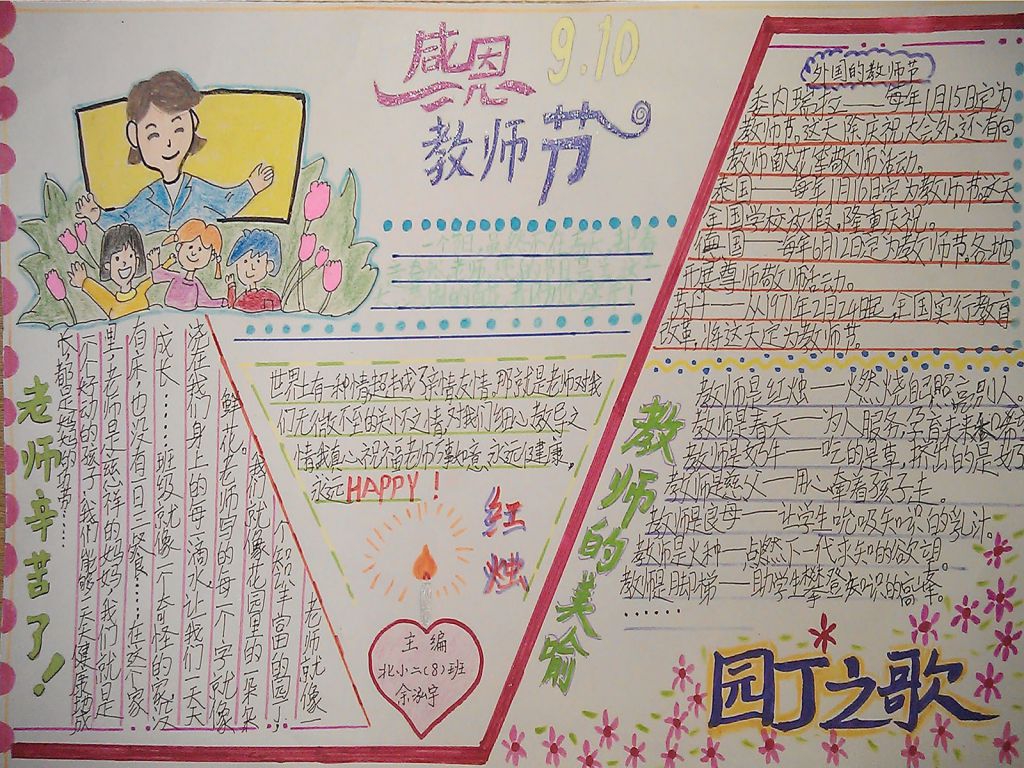 感恩
9.10
教师节
外国的教师节
委内瑞拉——每年1月15日定为
教师节,这天除庆祝大会外,还有向
教师献花等敬师活动。
泰国——每年1月16日定为教师节,这天
全国学校放假,隆重庆祝。
俄国——每年6月12日定为教师节,各地
开展尊师敬师活动。
从1971年2月24日起,全国实行教育
改革,将这天定为教师节。
世界上有一种情超越了亲情友情。那就是老师对我
们无微不至的关怀之情,对我们细心教导之
情。我真心祝福老师万事如意,永远健康,
永远HAPPY!
红烛
主编
北小二(8)班
余泓宇
老师辛苦了!
老师就像一
个知识丰富的园丁,
我们就像花园里的一朵朵
鲜花。老师写的每一个字就像
浇在我们身上的每一滴水,让我们一天天
成长……班级就像一个奇怪的家,没
有床,也没有一日三餐食……在这个家
里,老师是慈祥的妈妈,我们就是
一个个好动的孩子。我们能够天天健康地成
长,都是
教师的美喻
教师是红烛——燃烧自己照亮别人。
教师是春天——为人服务,孕育未来
教师是奶牛——吃的是草,挤出的是奶
教师是慈父——用心牵着孩子走。
教师是良母——让学生吮吸知识的乳汁。
教师是火种——点燃下一代求知的
教师是脚梯——助学生攀登知识的高峰。
……
园丁之歌